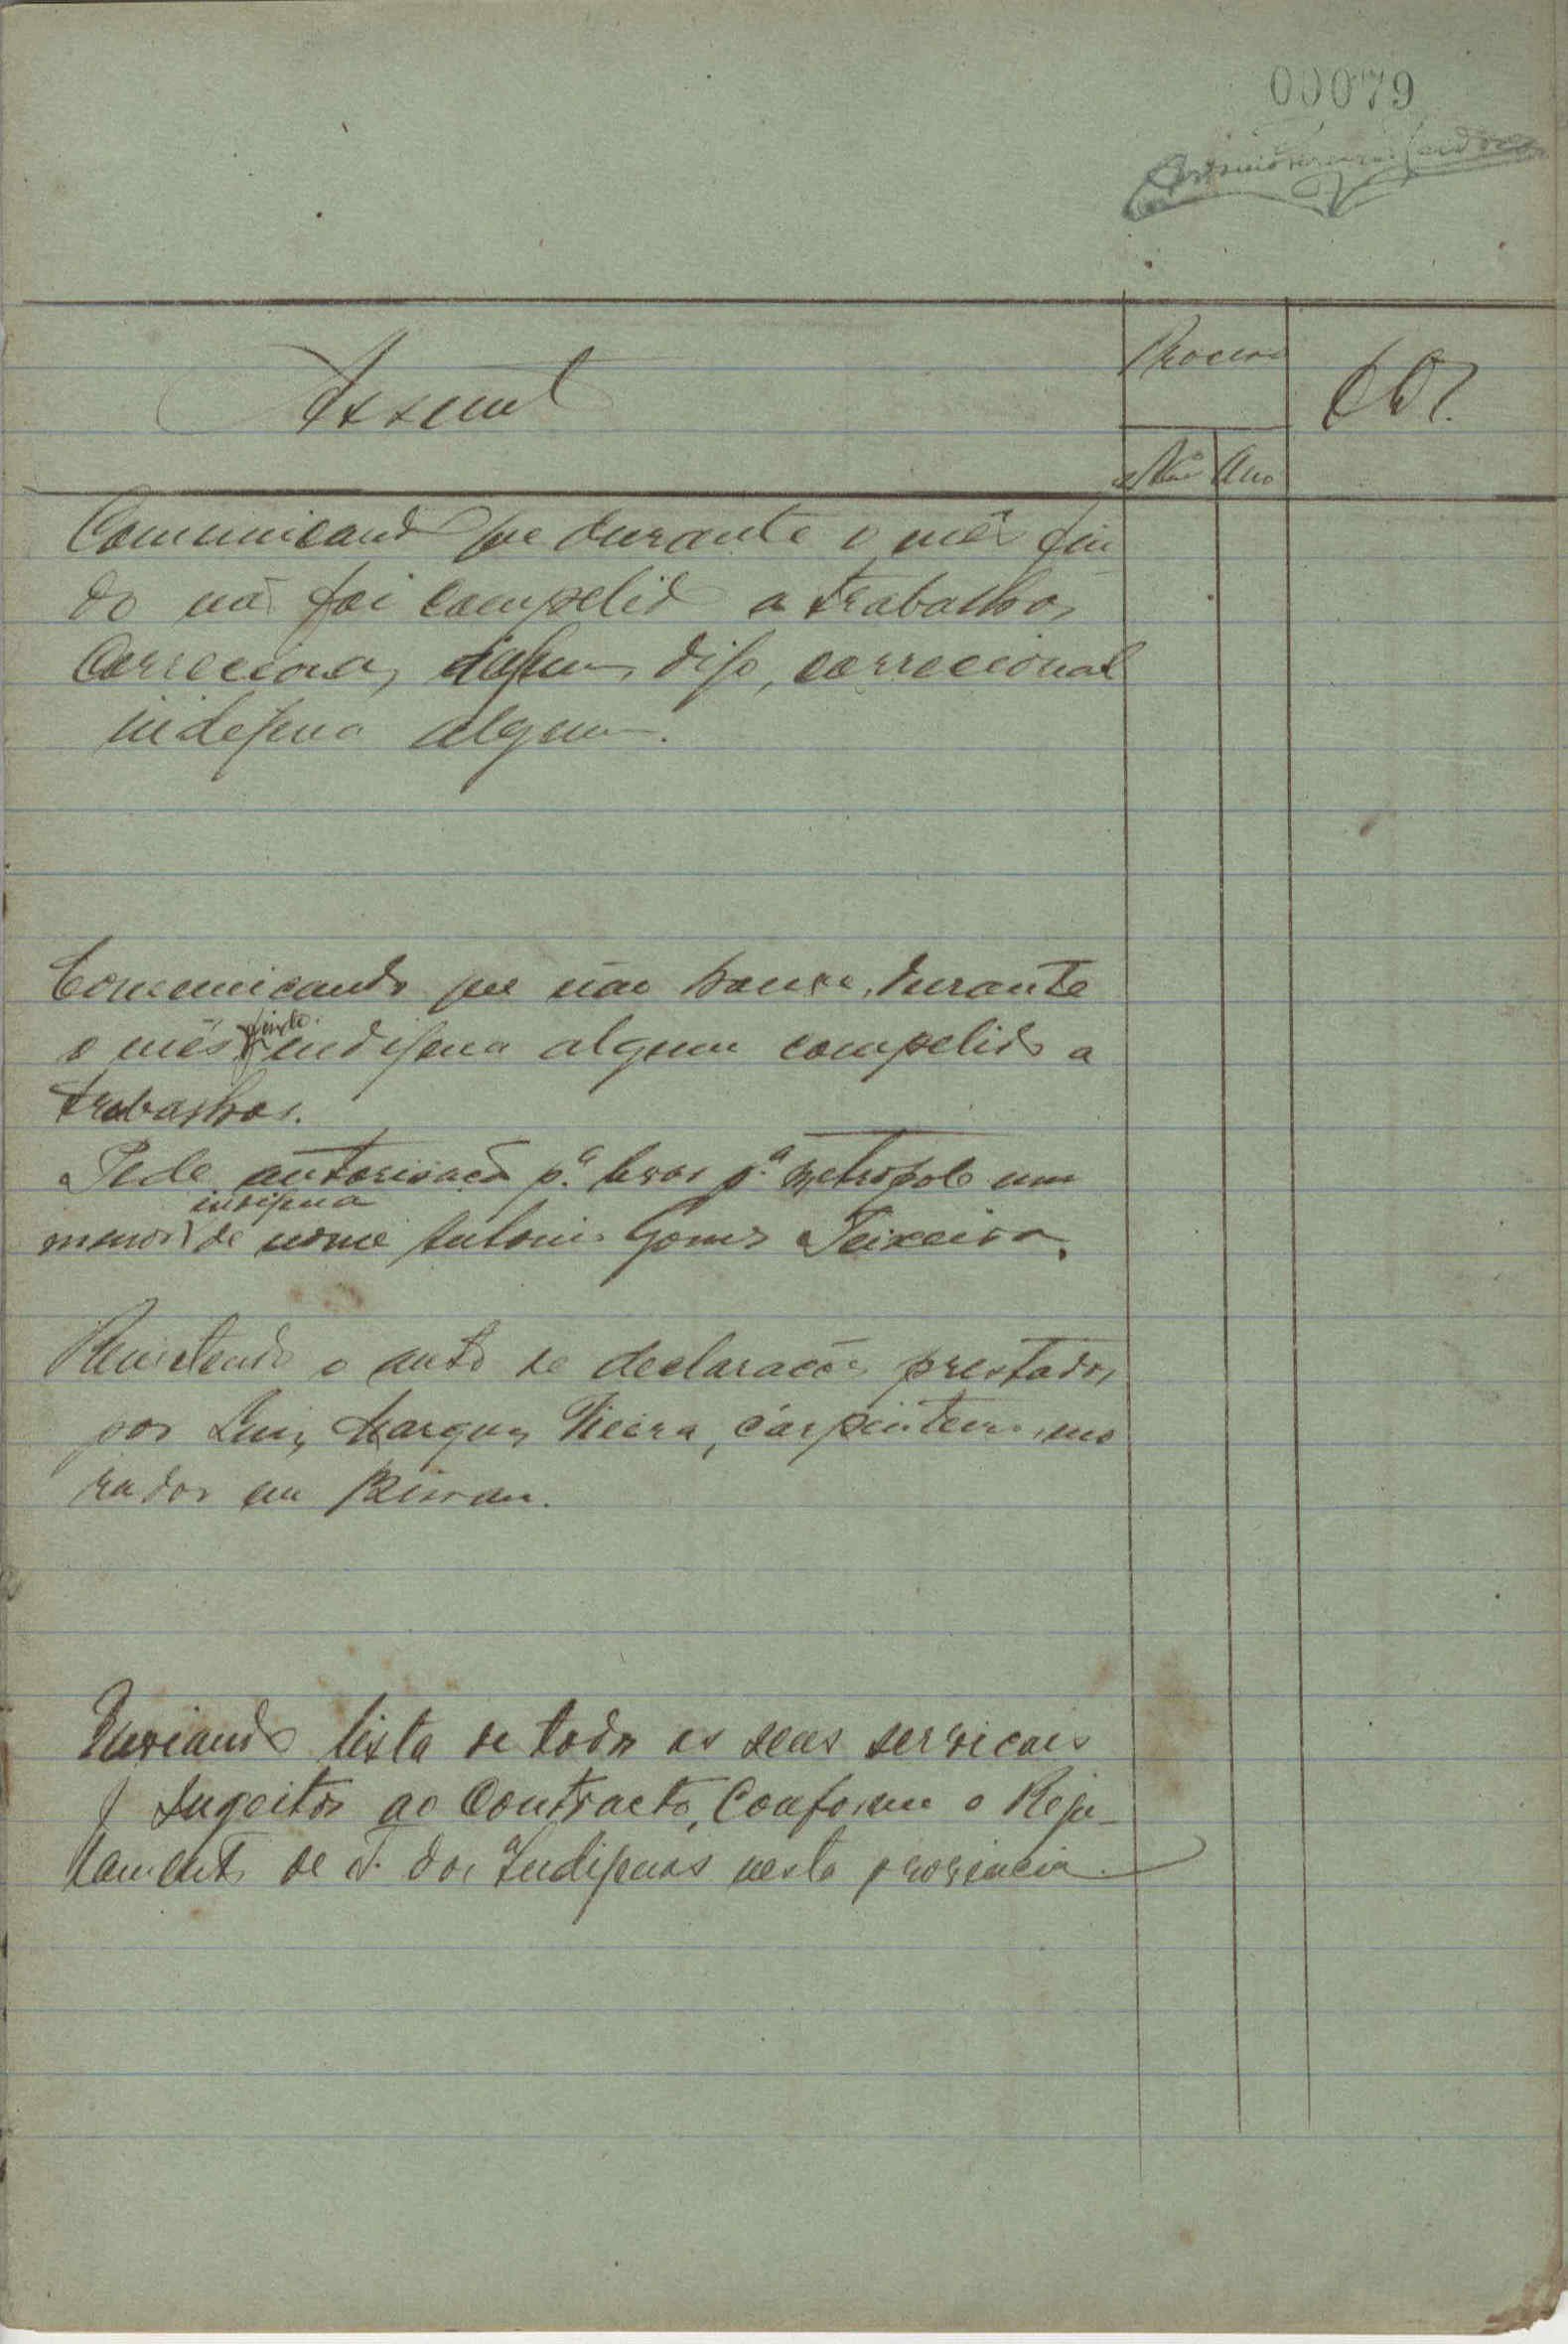 00079
Assunto
Processo
Obs.
Nº Ano
Comunicando que durante o mês fin
do não foi compelido a trabalhos
Correcionaes, digo, correcional
indigena algum.
Comunicando que não houve, durante
o mês findo indigena algum compelido a
trabalhos.
Pede autorisação p.ª levar p.ª metropole um
menor indigena de nome Antonio Gomes Teixeira.
Remetendo o auto de declarações prestadas
por Luis Marques Vieira, carpinteiro, mo
rador em Bissau.
Enviando lista de todos os seus serviçaes
sugeitos ao Contracto, Conforme o Regu-
lamento de T. dos Indigenas nesta provincia.